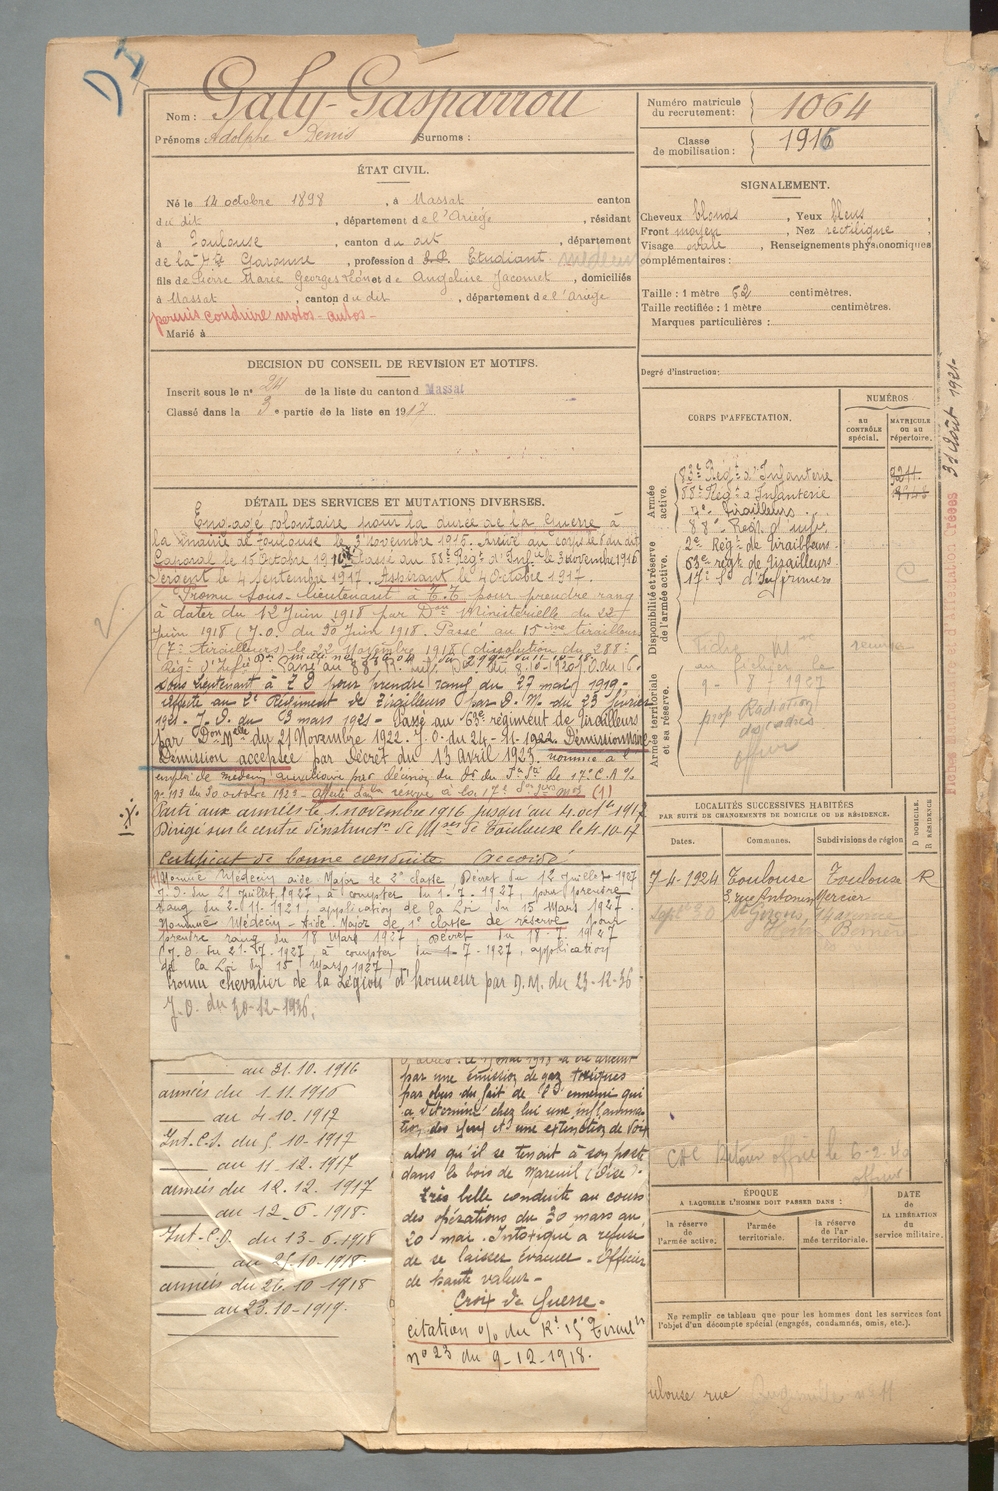 D I
Nom : Galy-Gasparrou
Prénoms Adolphe Denis Surnoms :
Numéro matricule du recrutement : 1064
Classe de mobilisation : 1916
ÉTAT CIVIL.
Né le 14 octobre 1898, à Massat canton
du dit, département de l'Ariège, résidant
à Toulouse, canton du dit, département
de la Hte Garonne, profession d Etudiant
fils de Pierre Marie Georges Léon et de Angeline Jacomet, domiciliés
à Massat, canton du dit, département de l'Ariège
permis conduire motos - autos -
Marié à
SIGNALEMENT.
Cheveux blonds, Yeux bleus,
Front moyen, Nez rectiligne,
Visage ovale, Renseignements physionomiques
complémentaires :
Taille : 1 mètre 62 centimètres.
Taille rectifiée : 1 mètre centimètres.
Marques particulières :
Degré d'instruction :
DECISION DU CONSEIL DE REVISION ET MOTIFS.
Inscrit sous le n° 24 de la liste du canton d Massat
Classé dans la 3e partie de la liste en 1917
CORPS D'AFFECTATION.
NUMÉROS
AU CONTRÔLE spécial.
MATRICULE OU AU répertoire.
Armée active.
83e Régt d'Infanterie
88e Régt d'Infanterie
7e Tirailleurs
88e Regt d'infie
Disponibilité et réserve de l'armée active.
2e Régt de Tirailleurs
63e régt de Tirailleurs
17e Son d'Infirmiers
Armée territoriale et sa réserve.
9 - 8 - 1927
Radiation
des cadres
31 août 1921
DÉTAIL DES SERVICES ET MUTATIONS DIVERSES.
Engagé volontaire pour la durée de la Guerre à
la mairie de Toulouse le 3 novembre 1915. Arrivé au corps le 5 au dit
Caporal le 15 Octobre 1916 Passé au 88e Régt d'Infie le 3 Novembre 1916
Sergent le 4 septembre 1917. Aspirant le 4 Octobre 1917.
Promu Sous-lieutenant à T.T. pour prendre rang
à dater du 12 Juin 1918 par Don Ministérielle du 22
Juin 1918 (J.O. du 30 Juin 1918. Passé au 15ème tirailleurs
(7e tirailleurs) le 22 Novembre 1918 (dissolution du 288e
Régt d'Infie
Sous Lieutenant à T D pour prendre rang du 27 mars 1919 -
affecté au 2e Régiment de Tirailleurs par D. M. du 23 février
1921 - J. O. du 3 mars 1921 - Passé au 63e régiment de Tirailleurs
par Don Mlle du 21 Novembre 1922. J. O. du 24-11-1922 Démissionnaire
Démission acceptée par Décret du 13 avril 1923. nommé à l'
emploi de médecin auxiliaire par décision du Dr du Sce Sté de 17e C.A %
n° 193 du 30 octobre 1923 - Affecté dans réserve à la 17e Son Infirmos (1)
Parti aux armées le 1 novembre 1916 jusqu'au 4 octbre 1917
Dirigé sur le centre d'instructn de Mses de Toulouse le 4.10.17
Certificat de bonne conduite Accordé
(1) Nommé Médecin aide Major de 2e classe, Décret du 12 Juillet 1927
J.O. du 21 Juillet 1927, à compter du 1.7.1927, pour prendre
rang du 2.11.1921, application de la Loi du 15 Mars 1927.
Nommé Médecin Aide Major de 1e classe de réserve pour
prendre rang du 18 Mars 1927, Décret du 18-7-1927
(J.O. du 21-7-1927, à compter du 1-7-1927, application
de la Loi du 15 Mars 1927)
Promu chevalier de la Légion d'honneur par D.M. du 23-12-36
J.O. du 30-12-1936.
au 31.10.1916
armées du 1.11.1916
au 4.10.1917
Int.C.S. du 5.10.1917
au 11.12.1917
armées du 12.12.1917
au 12.6.1918.
Int.C.G. du 13-6.1918
au 25.10.1918.
armées du 26.10.1918
au 23.10-1919.
par une émission de gaz toxiques
par obus du fait de l'ennemi qui
a déterminé chez lui une inflamma
tion des yeux et une extinction de voix
alors qu'il se tenait à son poste
dans le bois de Mareuil (Oise).
Très belle conduite au cours
des opérations du 30 mars au
20 mai. Intoxiqué a refusé
de se laisser évacuer. Officier
de haute valeur -
Croix de Guerre.
Citation o/ du Rt 15e Tiraillrs
n° 23 du 9-12-1918.
LOCALITÉS SUCCESSIVES HABITÉES
PAR SUITE DE CHANGEMENTS DE DOMICILE OU DE RÉSIDENCE.
Dates. Communes. Subdivisions de région
D DOMICILE. R RÉSIDENCE
7-4-1924 Toulouse Toulouse R
3, rue Antonin Mercier
Sept 30 St Girons
Retour le 6-2-40
ÉPOQUE
A LAQUELLE L'HOMME DOIT PASSER DANS :
la réserve de l'armée active.
l'armée territoriale.
la réserve de l'armée territoriale.
DATE DE LA LIBÉRATION du service militaire.
Ne remplir ce tableau que pour les hommes dont les services font
l'objet d'un décompte spécial (engagés, condamnés, omis, etc.).
oulouse rue n° 11